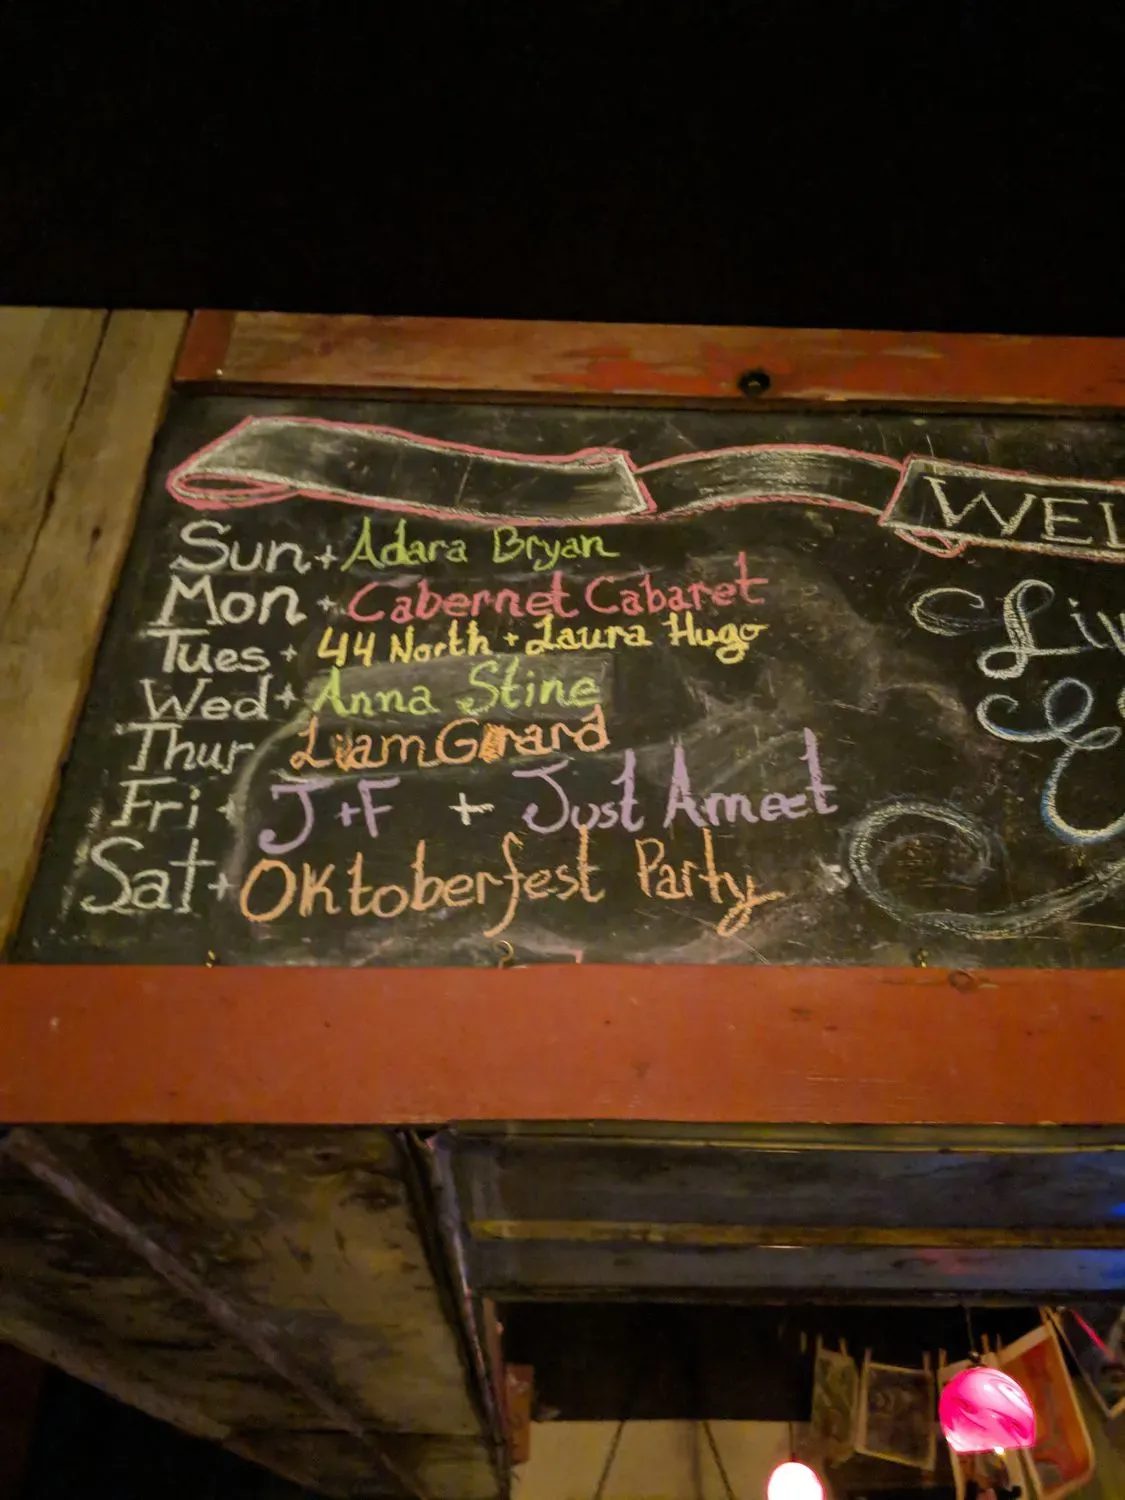 WEL
Sun + Adara Bryan
Mon + Cabernet Cabaret
Tues + 44 North + Laura Hugo
Wed + Anna Stine
Thur Liam Girard
Fri + J+F + Just Ameet
Sat + Oktoberfest Party
Liv